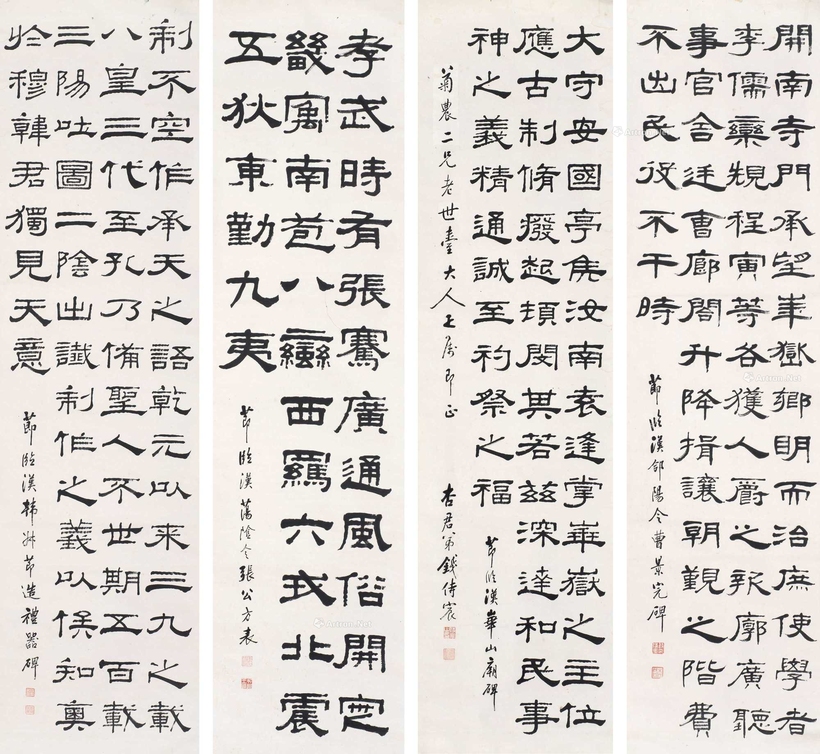 開南寺門承望華嶽鄉明而治庶使學者
李儒欒規程寅等各獲人爵之報廓廣聽
事官舍廷曹廊閣升降揖讓朝覲之階費
不出民役不干時
節臨漢郃陽令曹景完碑
大守安國亭侯汝南袁逢掌華嶽之主位
應古制脩廢起頓閔其若茲深達和民事
神之義精通誠至礿祭之福
節臨漢華山廟碑
菊農二兄老世臺大人正屬即正
杏君弟錢侍宸
孝武時有張騫廣通風俗開定
畿㝢南苞八蠻西羈六戎北震
五狄東勤九夷
節臨漢蕩陰令張公方表
制不空作承天之語乾元以来三九之載
八皇三代至孔乃備聖人不世期五百載
三陽吐圖二陰出讖制作之義以俟知奧
於穆韓君獨見天意
節臨漢韓叔節造禮器碑